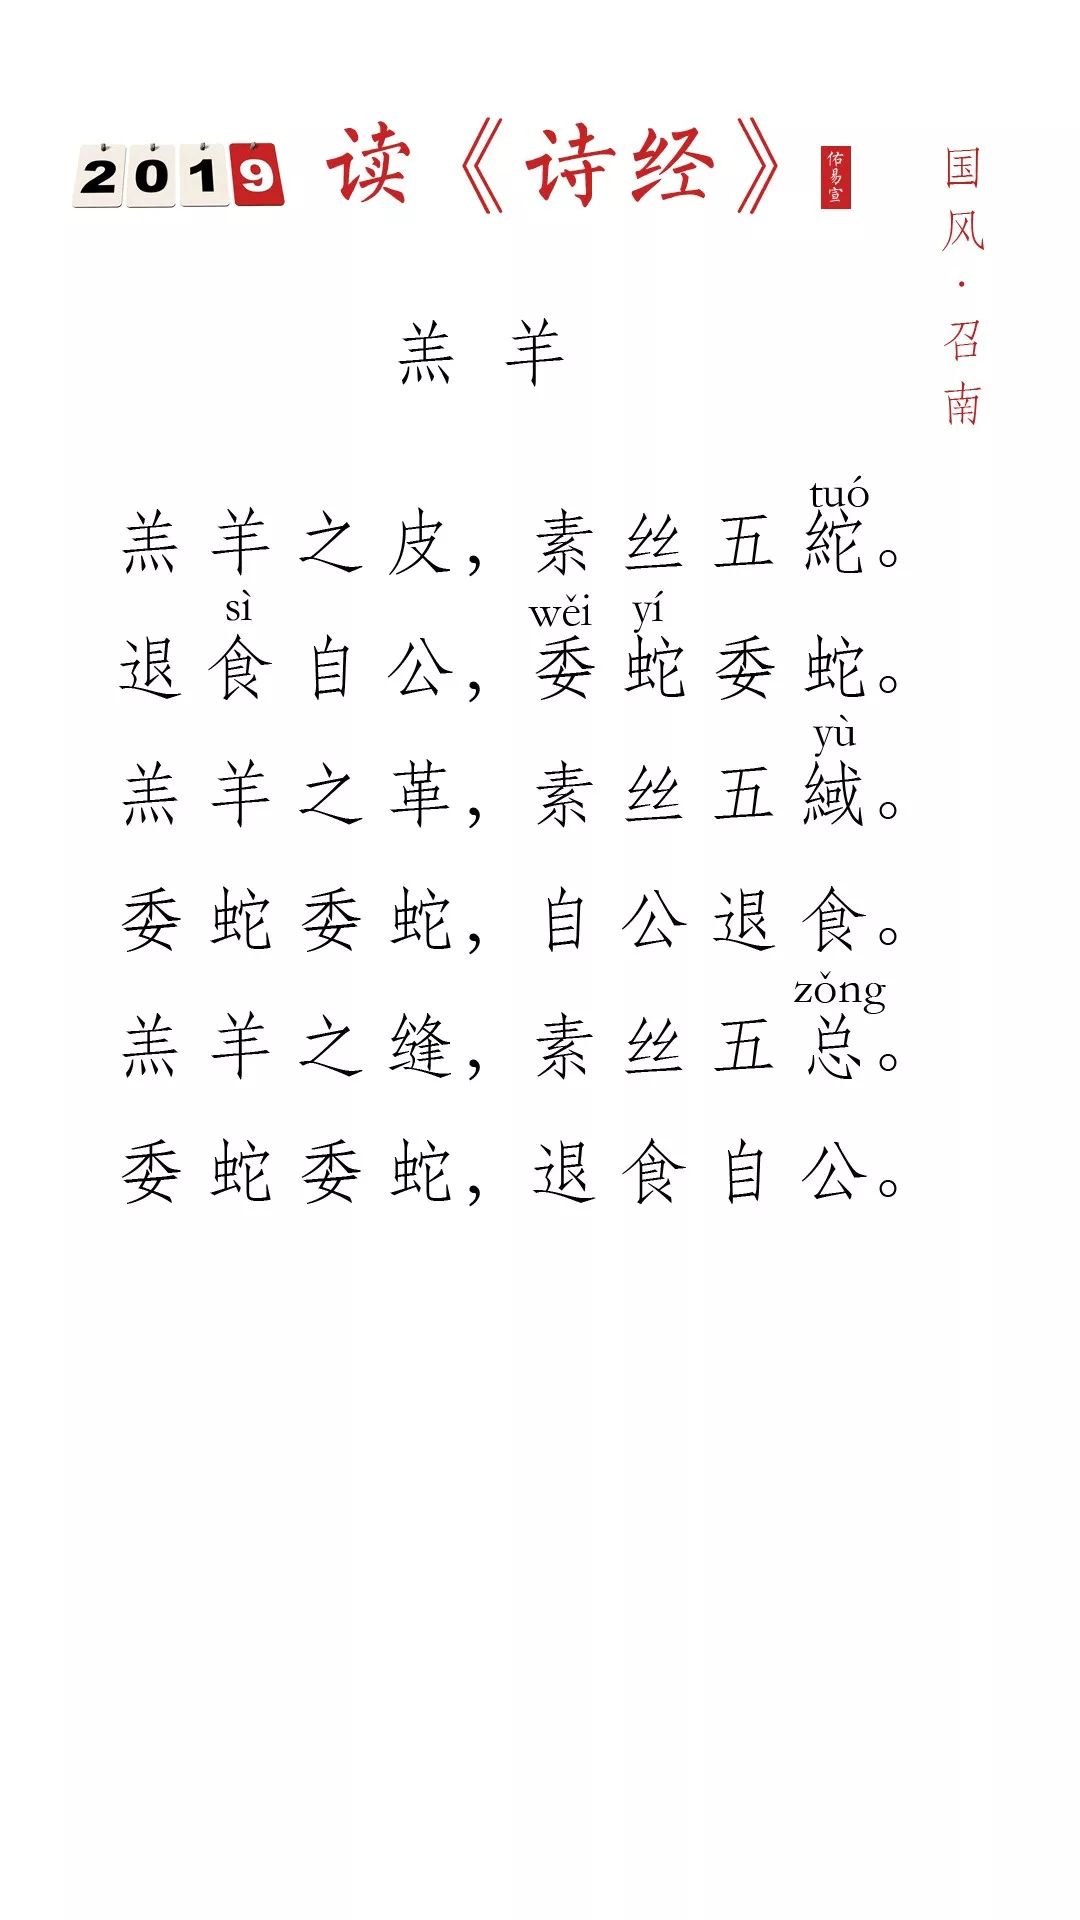 2019 读《诗经》 佑易宣
国风·召南
羔羊
tuó
羔羊之皮，素丝五紽。
sì wěi yí
退食自公，委蛇委蛇。
yù
羔羊之革，素丝五緎。
委蛇委蛇，自公退食。
zǒng
羔羊之缝，素丝五总。
委蛇委蛇，退食自公。